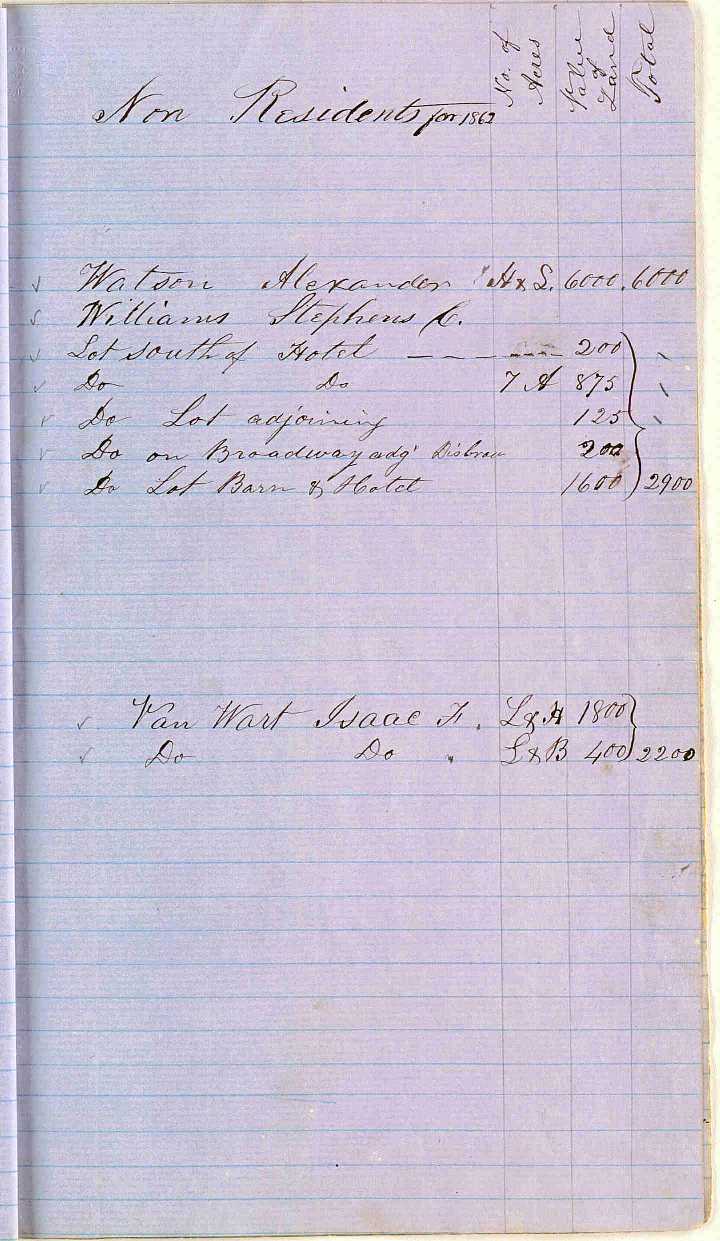 Non Residents for 1862 No. of Acres Value of Land Total
Watson Alexander H & L. 6000. 6000
Williams Stephens C.
Lot south of Hotel — — — 200
Do Do 7 A 875
Do Lot adjoining 125
Do on Broadway adj' Disbrow 200
Do Lot Barn & Hotel 1600 2900
Van Wart Isaac F. L & H 1800
Do Do " L & B 400 2200